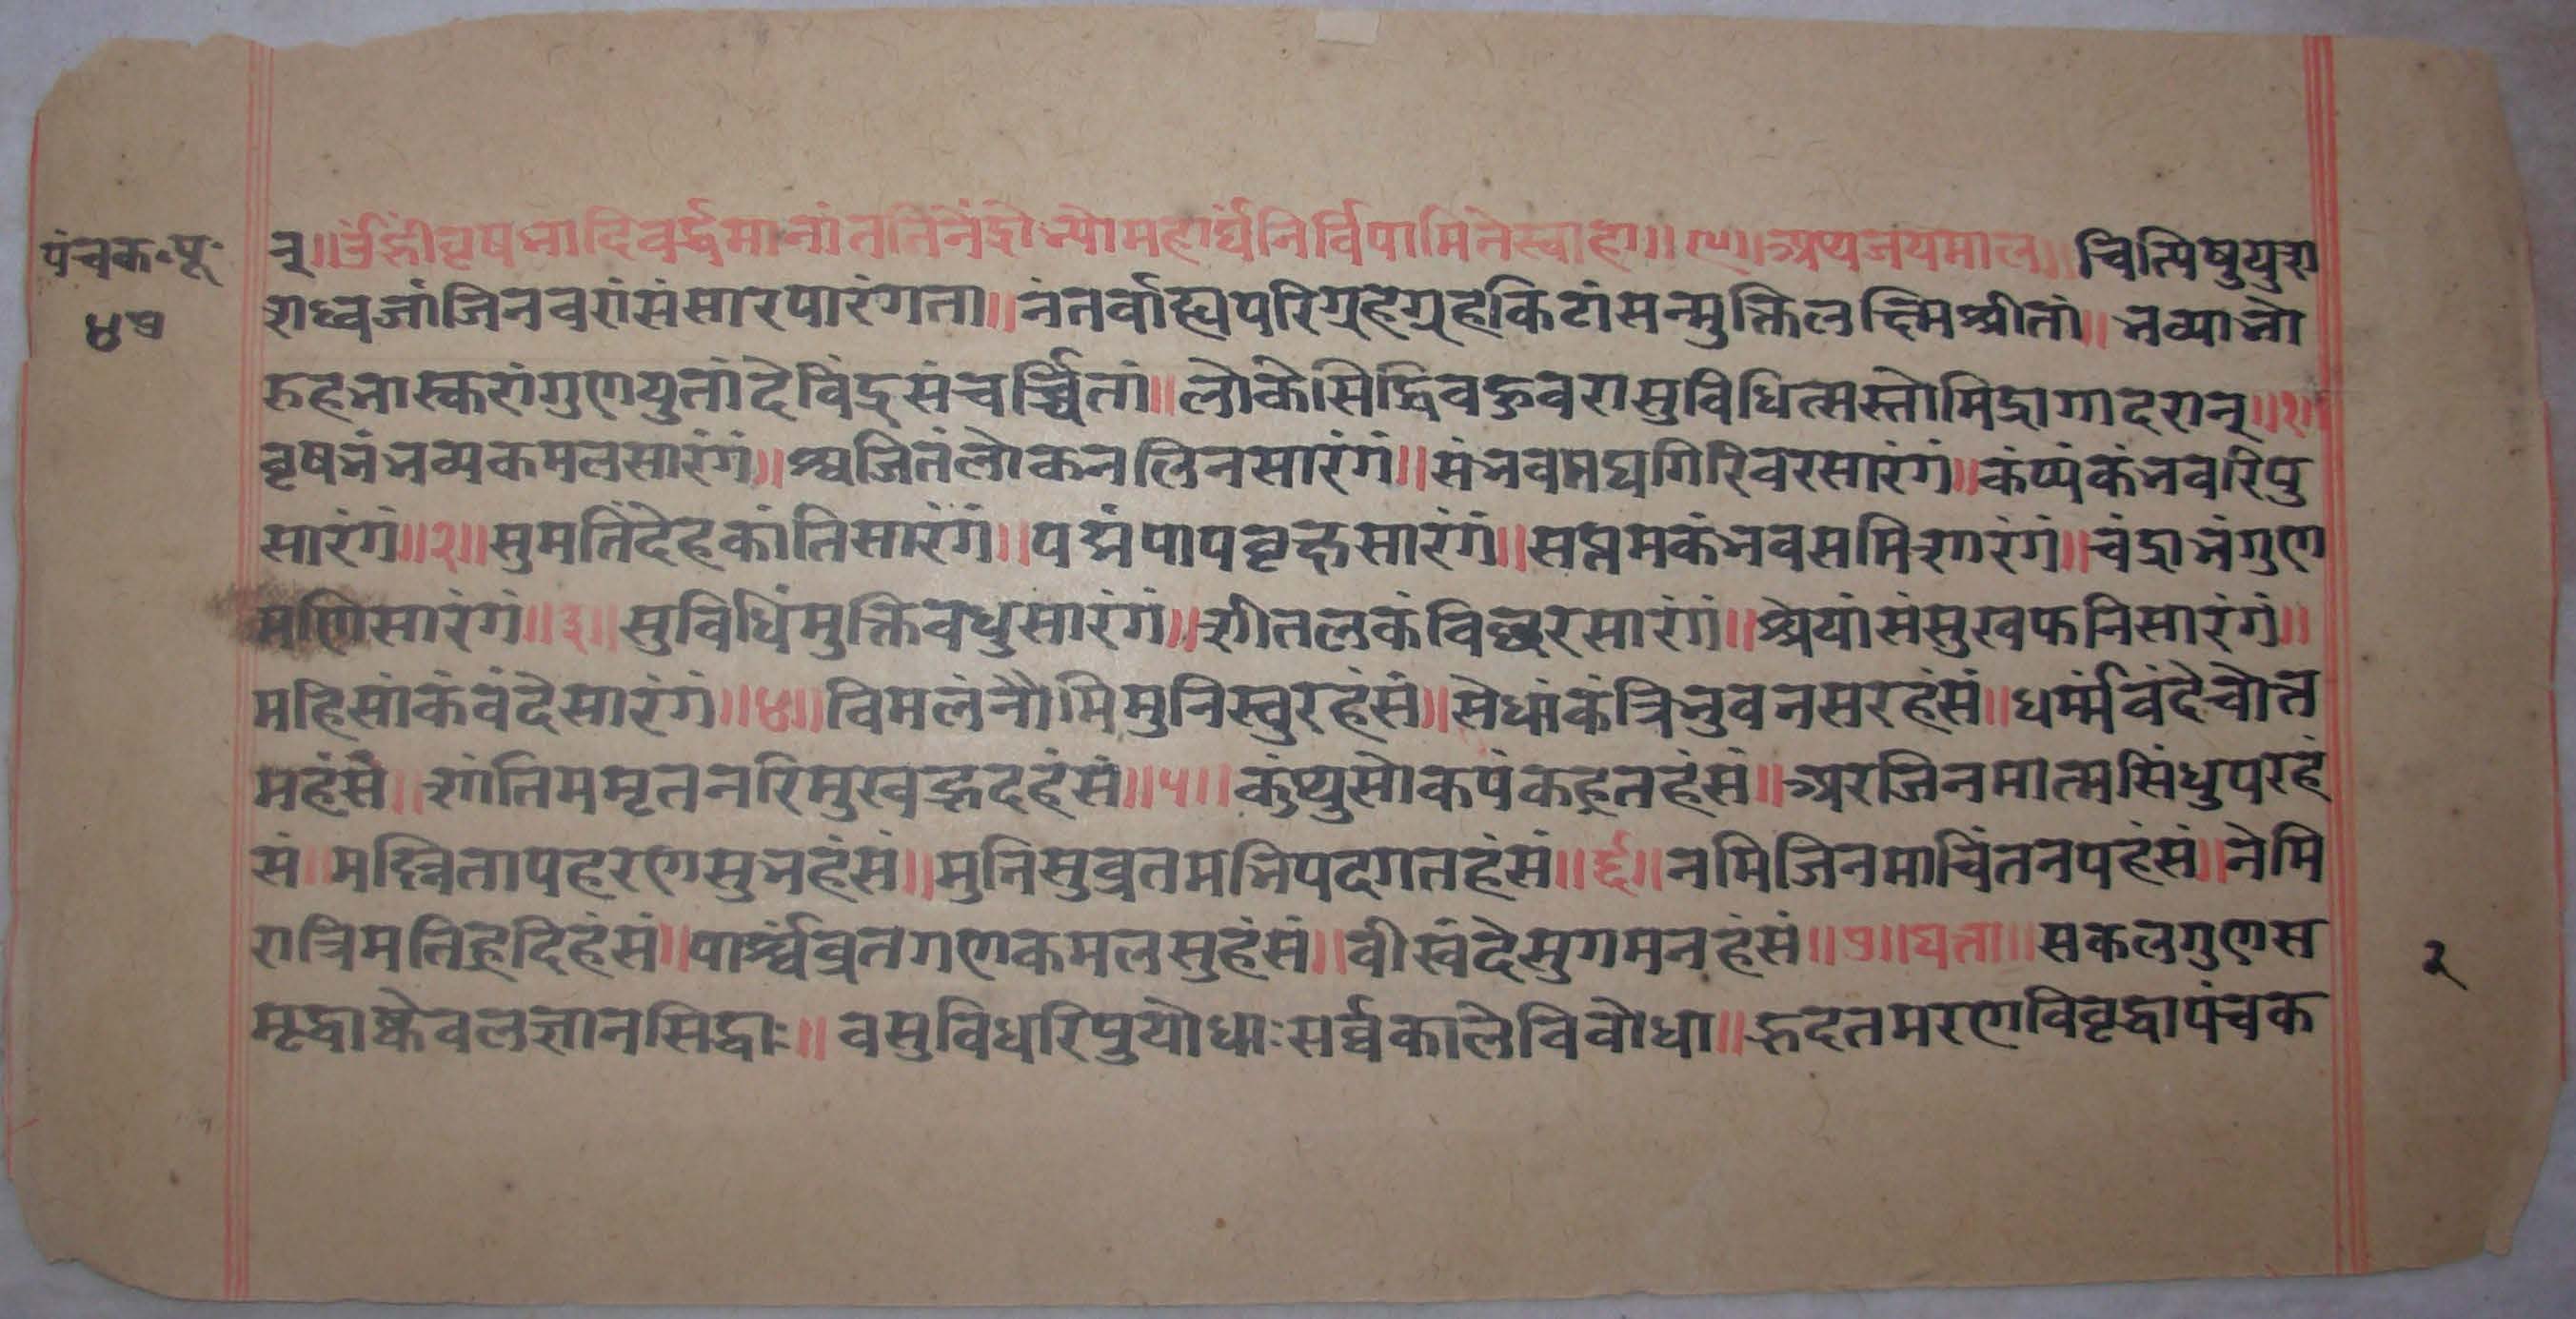 पंचक॰पू॰
४७
न्॥ॐह्रींवृषभादिवर्द्धमानांतजिनेंद्रेभ्योमहार्घंनिर्विपामितेस्वाहा॥९॥अथजयमाल॥
राध्वजांजिनवरांसंसारपारंगता॥नंतर्वाह्यपरिग्रहेग्रहकिटांसन्मुक्तिलक्ष्मिश्रीतां॥भव्यांभो
रुहभास्करांगुणयुतांदेविंद्रसंचर्च्चितां॥लोकेसिद्धिवक्तुवरासुविधित्मस्तोमिद्रागादरान्॥१॥
वृषभंभव्यकमलसारंगं॥अजितंलोकनलिनसारंगं॥संभवमघगिरिवरसारंगं॥कंप्यंकंभवरिपु
सारंगं॥२॥सुमतिंदेहकांतिसारंगं॥पद्मंपापवृक्षसारंगं॥सप्तमकंभवसमिशारंगं॥चंद्राभंगुण
मणिसारंगं॥३॥सुविधिंमुक्तिवधुसारंगं॥शीतलकंविष्टरसारंगं॥श्रेयांसंसुखफनिसारंगं॥
महिसांकंवंदेसारंगं॥४॥विमलंनौमिमुनिस्वुरहंसं॥सेधांकंत्रिभुवनसरहंसं॥धर्म्मंवंदेचोत
महंसं॥शांतिममृतनरिमुखह्रदहंसं॥५॥कुंथुसोकपंकहृतहंसं॥अरजिनमात्मसिंधुपरहं
सं॥मल्लितापहरणसुभहंसं॥मुनिसुव्रतमभिपदगतहंसं॥६॥नमिजिनमाचिंतनपहंसं॥नेमि
रात्रिमतिहृदिहंसं॥पार्श्वंव्रतगणकमलसुहंसं॥वीरवंदेसुगमनहंसं॥७॥घता॥सकलगुणस
मृद्धाष्केवलज्ञानसिद्धाः॥वसुविधरिपुयोधाःसर्व्वकालेविवोधा॥रुदतमरणविवृद्धापंचक
२